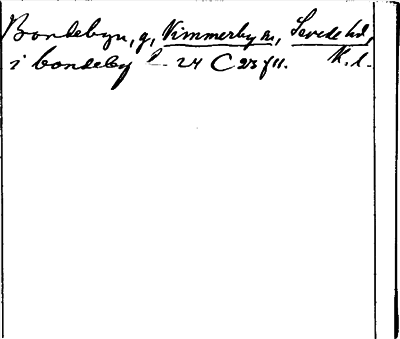 Bondebyn, g, Vimmerby sn, Sevede hd,
i bondeby l. 24 C 23 f 11. K. l.